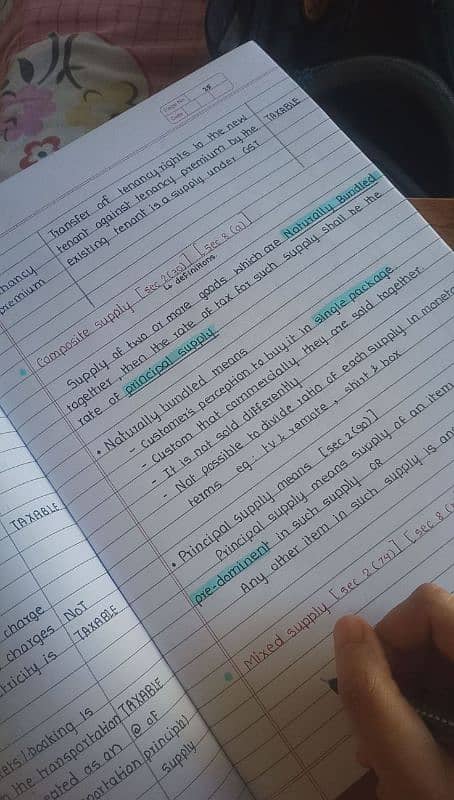 Page No. 28
Date
Transfer of tenancy rights to the new
tenant against tenancy premium by the
existing tenant is a supply under GST
TAXABLE
Composite supply [sec 2(30)] [sec 8(a)]
↳ definitions
Supply of two or more goods which are Naturally Bundled
together, then the rate of tax for such supply shall be the
rate of principal supply
• Naturally bundled means
- Customer's perception to buy it in single package
- Custom that commercially they are sold together
- It is not sold differently
- Not possible to divide ratio of each supply in
terms eg: T.V & remote, shirt & box
• Principal supply means [sec 2(90)]
Principal supply means supply of an item
pre-dominent in such supply OR
Any other item in such supply is
Mixed supply [sec 2(74)] [sec 8
premium
TAXABLE
charge
charges
NOT
TAXABLE
is
booking is
the transportation
TAXABLE
as an
@ of
principle
supply